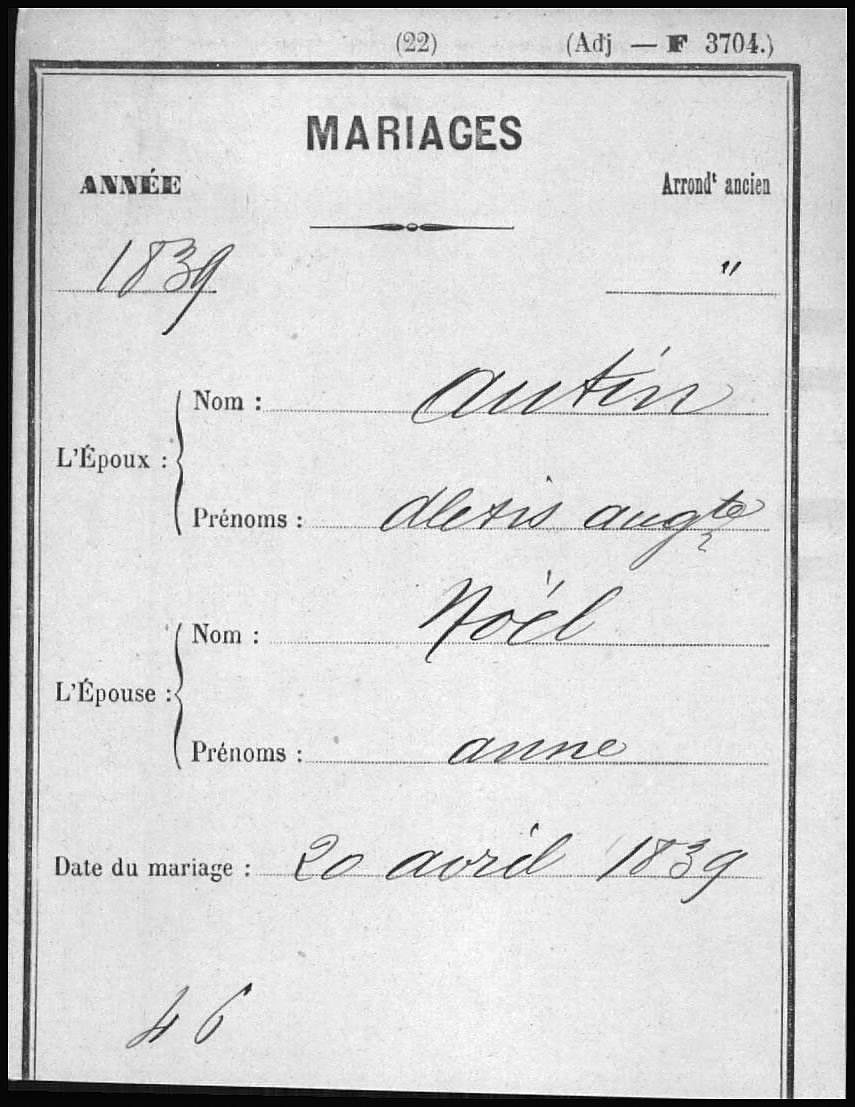 (22) (Adj — F 3704.)
MARIAGES
ANNÉE Arrondt ancien
1839 "
L'Époux :
Nom : Autin
Prénoms : Alexis augte
L'Épouse :
Nom : Noël
Prénoms : anne
Date du mariage : 20 avril 1839
46